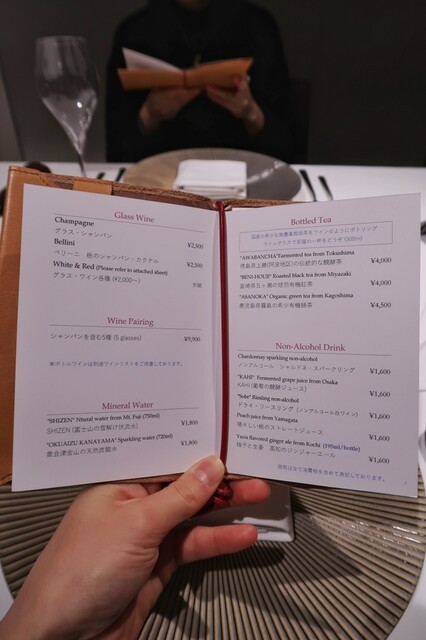 Glass Wine
Champagne
グラス・シャンパン ¥2,500
Bellini
ベリーニ 桃のシャンパン・カクテル ¥2,500
White & Red (Please refer to attached sheet)
グラス・ワイン各種 (¥2,000～) 別紙
Wine Pairing
シャンパンを含む5種 (5 glasses) ¥9,900
※ボトルワインは別途ワインリストをご用意しております。
Mineral Water
"SHIZEN" Ntural water from Mt. Fuji (750ml)
SHIZEN (富士山の雪解け伏流水) ¥1,800
"OKUAIZU KANAYAMA" Sparkling water (720ml)
奥会津金山の天然炭酸水 ¥1,800
Bottled Tea
国産の希少な無農薬栽培茶をワインのようにボトリング
ワイングラスで至福の一杯をどうぞ (500ml)
"AWABANCHA"Fermented tea from Tokushima
徳島県上勝(阿波地区)の伝統的な醗酵茶 ¥4,000
"BENI-HOUJI" Roasted black tea from Miyazaki
宮崎県五ヶ瀬の焙煎有機紅茶 ¥4,000
"ASANOKA" Organic green tea from Kagoshima
鹿児島県霧島の希少有機緑茶 ¥4,500
Non-Alcohol Drink
Chardonnay sparkling non-alcohol
ノンアルコール シャルドネ・スパークリング ¥1,600
"KAHI" Fermented grape juice from Osaka
KAHI (葡萄の醗酵ジュース) ¥1,600
Riesling non-alcohol
ドライ・リースリング (ノンアルコール白ワイン) ¥1,600
Peach juice from Yamagata
瑞々しい桃のストレートジュース ¥1,600
Yuzu flavored ginger ale from Kochi (195ml/bottle)
柚子と生姜 高知のジンジャーエール ¥1,600
価格は全て消費税を含めて表記しております。